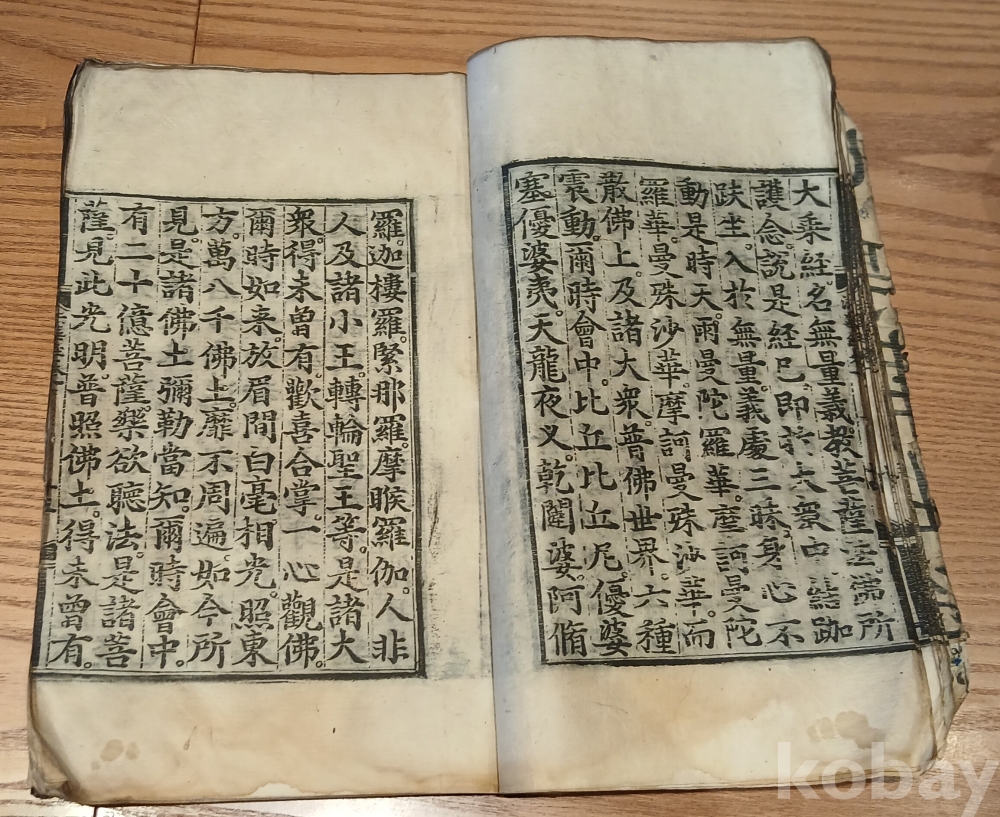 大乘経名無量義教菩薩法佛所
護念。說是経已。即於大衆中結跏
趺坐。入於無量義處三昧。身心不
動是時天。雨曼陀羅華。摩訶曼陀
羅華。曼殊沙華。摩訶曼殊沙華。而
散佛上。及諸大衆。普佛世界。六種
震動。爾時會中。比丘比丘尼。優婆
塞優婆夷。天龍夜叉。乾闥婆。阿脩
羅。迦樓羅。緊那羅。摩睺羅伽。人非
人及諸小王。轉輪聖王等。是諸大
衆。得未曾有。歡喜合掌。一心觀佛。
爾時如来。放眉間白毫相光。照東
方。萬八千佛土。靡不周遍。如今所
見。是諸佛土彌勒當知。爾時會中。
有二十億菩薩。樂欲聽法。是諸菩
薩見此光明普照佛土。得未曾有。
kobay